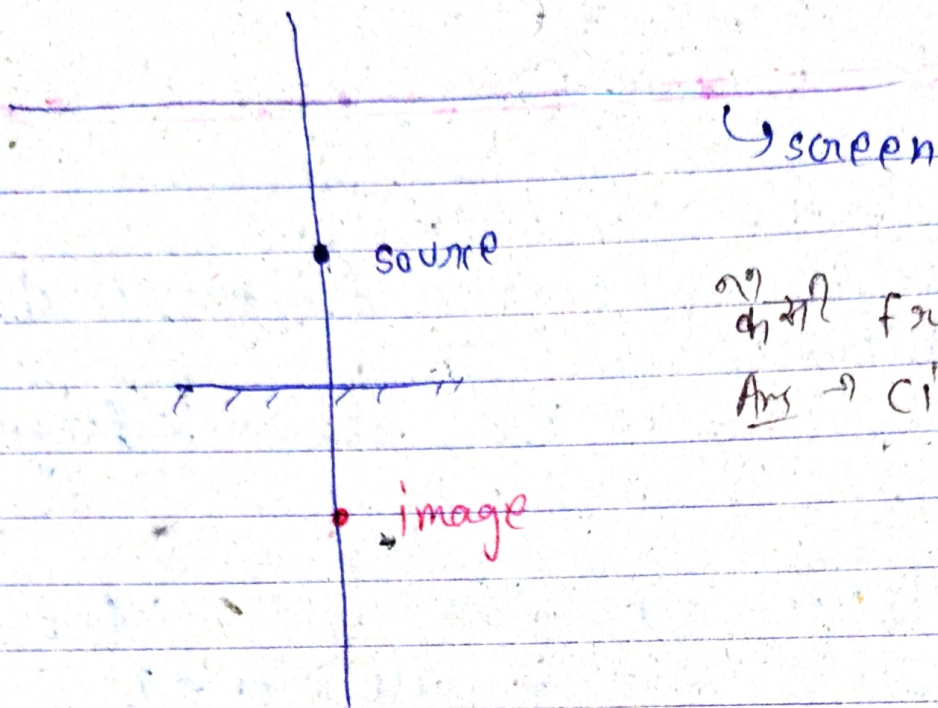 screen
source
कैसी
Ans →
image